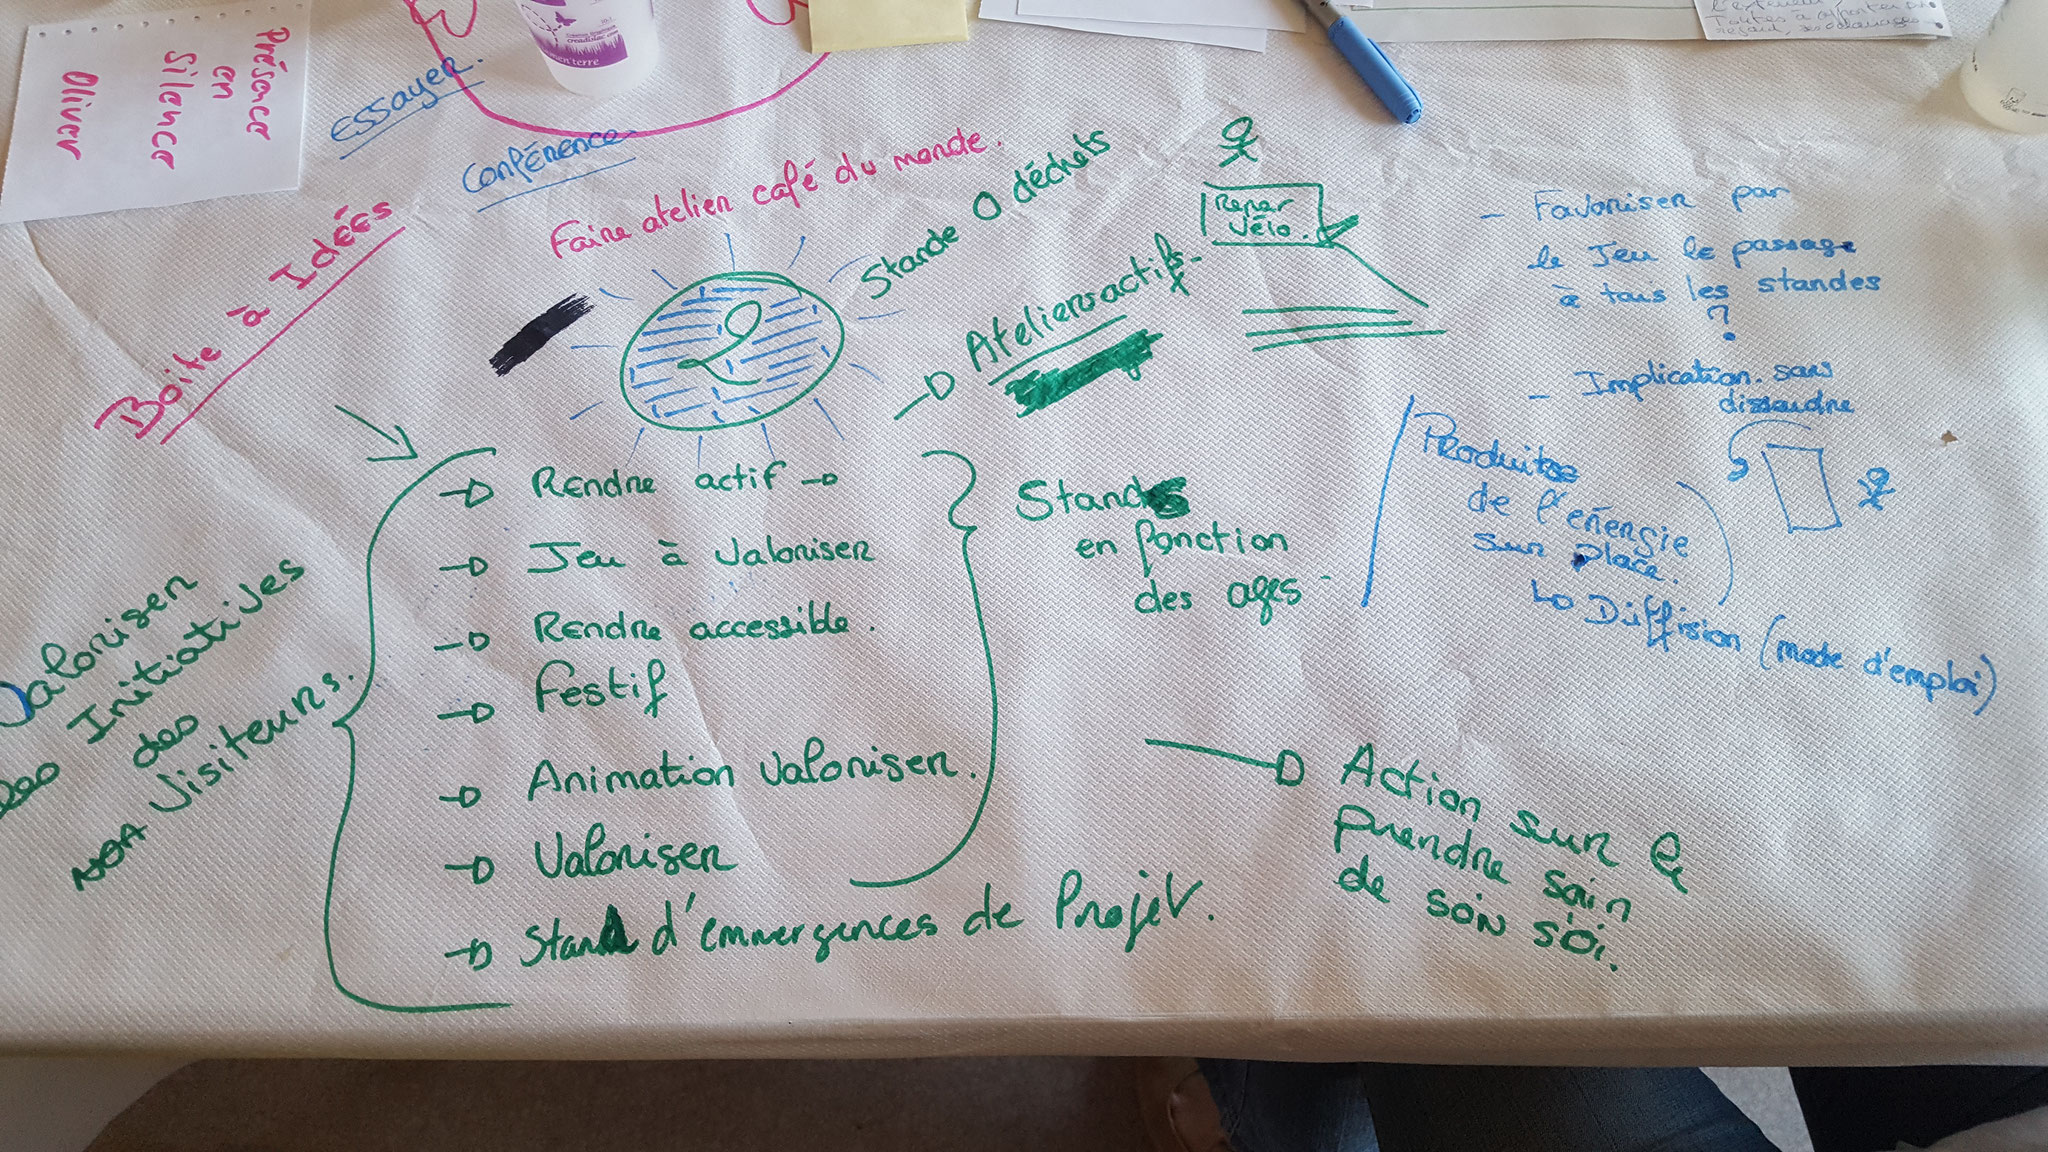 Présence
en
Silence
Oliver
essayer.
Conférence
Boite à Idées
Faire atelier café du monde.
Stande 0 déchets
Ateliers actifs
Reper
Vélo.
- Favoriser par
le Jeu le passage
à tous les standes
?
- Implication sans
Produits
de l'énergie
sur place.
Diffision (mode d'emploi)
Valoriser
Initiatives
des
non Visiteurs.
Rendre actif
Jeu à Valoriser
Rendre accessible.
Festif
Animation Valoriser.
Valoriser
Stand d'émmergences de Projet.
Stands
en fonction
des ages
Action sur le
prendre soin
de soin soi.